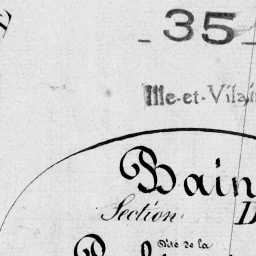 - 35 -
Ille-et-Vilai
Bain
Section D
Dite de la